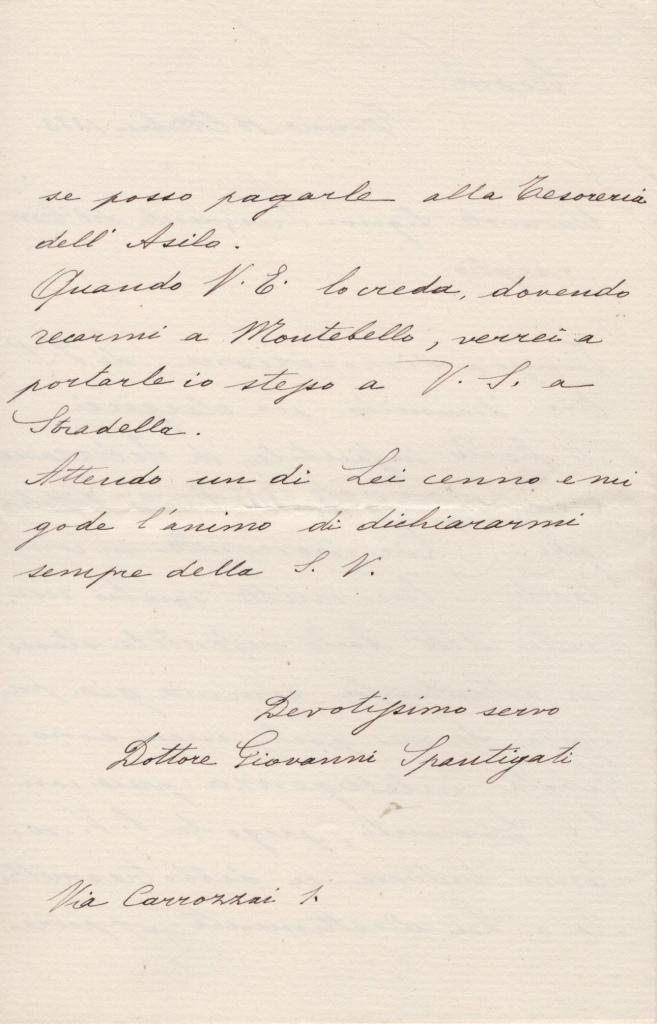 se posso pagarle alla Tesoreria
dell' Asilo.
Quando V. E. lo creda, dovendo
recarmi a Montebello, verrei a
portarle io stesso a V. S. a
Stradella.
Attendo un di Lei cenno e mi
gode l'animo di dichiararmi
sempre della S. V.
Devotissimo servo
Dottore Giovanni Spantigati
Via Carrozzai 1.